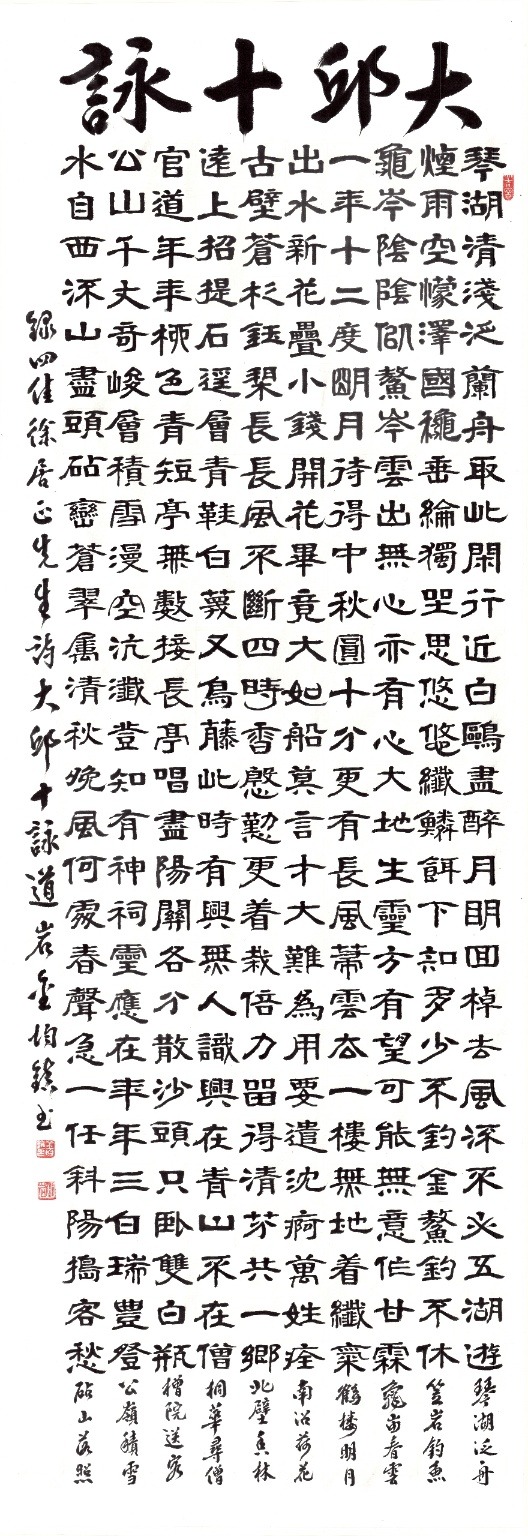 大邱十詠
琴湖清淺泛蘭舟取此閑行近白鷗盡醉月明回棹去風流不必五湖遊 琴湖泛舟
煙雨空濛澤國穐垂綸獨坐思悠悠纖鱗餌下知多少不釣金鰲釣不休 笠岩釣魚
龜岑陰陰似鰲岑雲出無心亦有心大地生靈方有望可能無意作甘霖 龜峀春雲
一年十二度明月待得中秋圓十分更有長風箒雲去一樓無地着纖氛 鶴樓明月
出水新花疊小錢開花畢竟大如船莫言才大難為用要遣沈痾萬姓痊 南沼荷花
古壁蒼杉鈺槊長長風不斷四時香慇懃更着栽倍力留得清芬共一鄉 北壁香林
遠上招提石逕層青鞋白襪又烏藤此時有興無人識興在青山不在僧 桐華尋僧
官道年年柳色青短亭無數接長亭唱盡陽關各分散沙頭只臥雙白瓶 櫓院送客
公山千丈奇峻層積雪漫空沆瀣登知有神祠靈應在年年三白瑞豊登 公嶺積雪
水自西流山盡頭砧巒蒼翠屬清秋晚風何處舂聲急一任斜陽搗客愁 砧山落照
錄四佳徐居正先生詩大邱十詠道岩金均鎮書